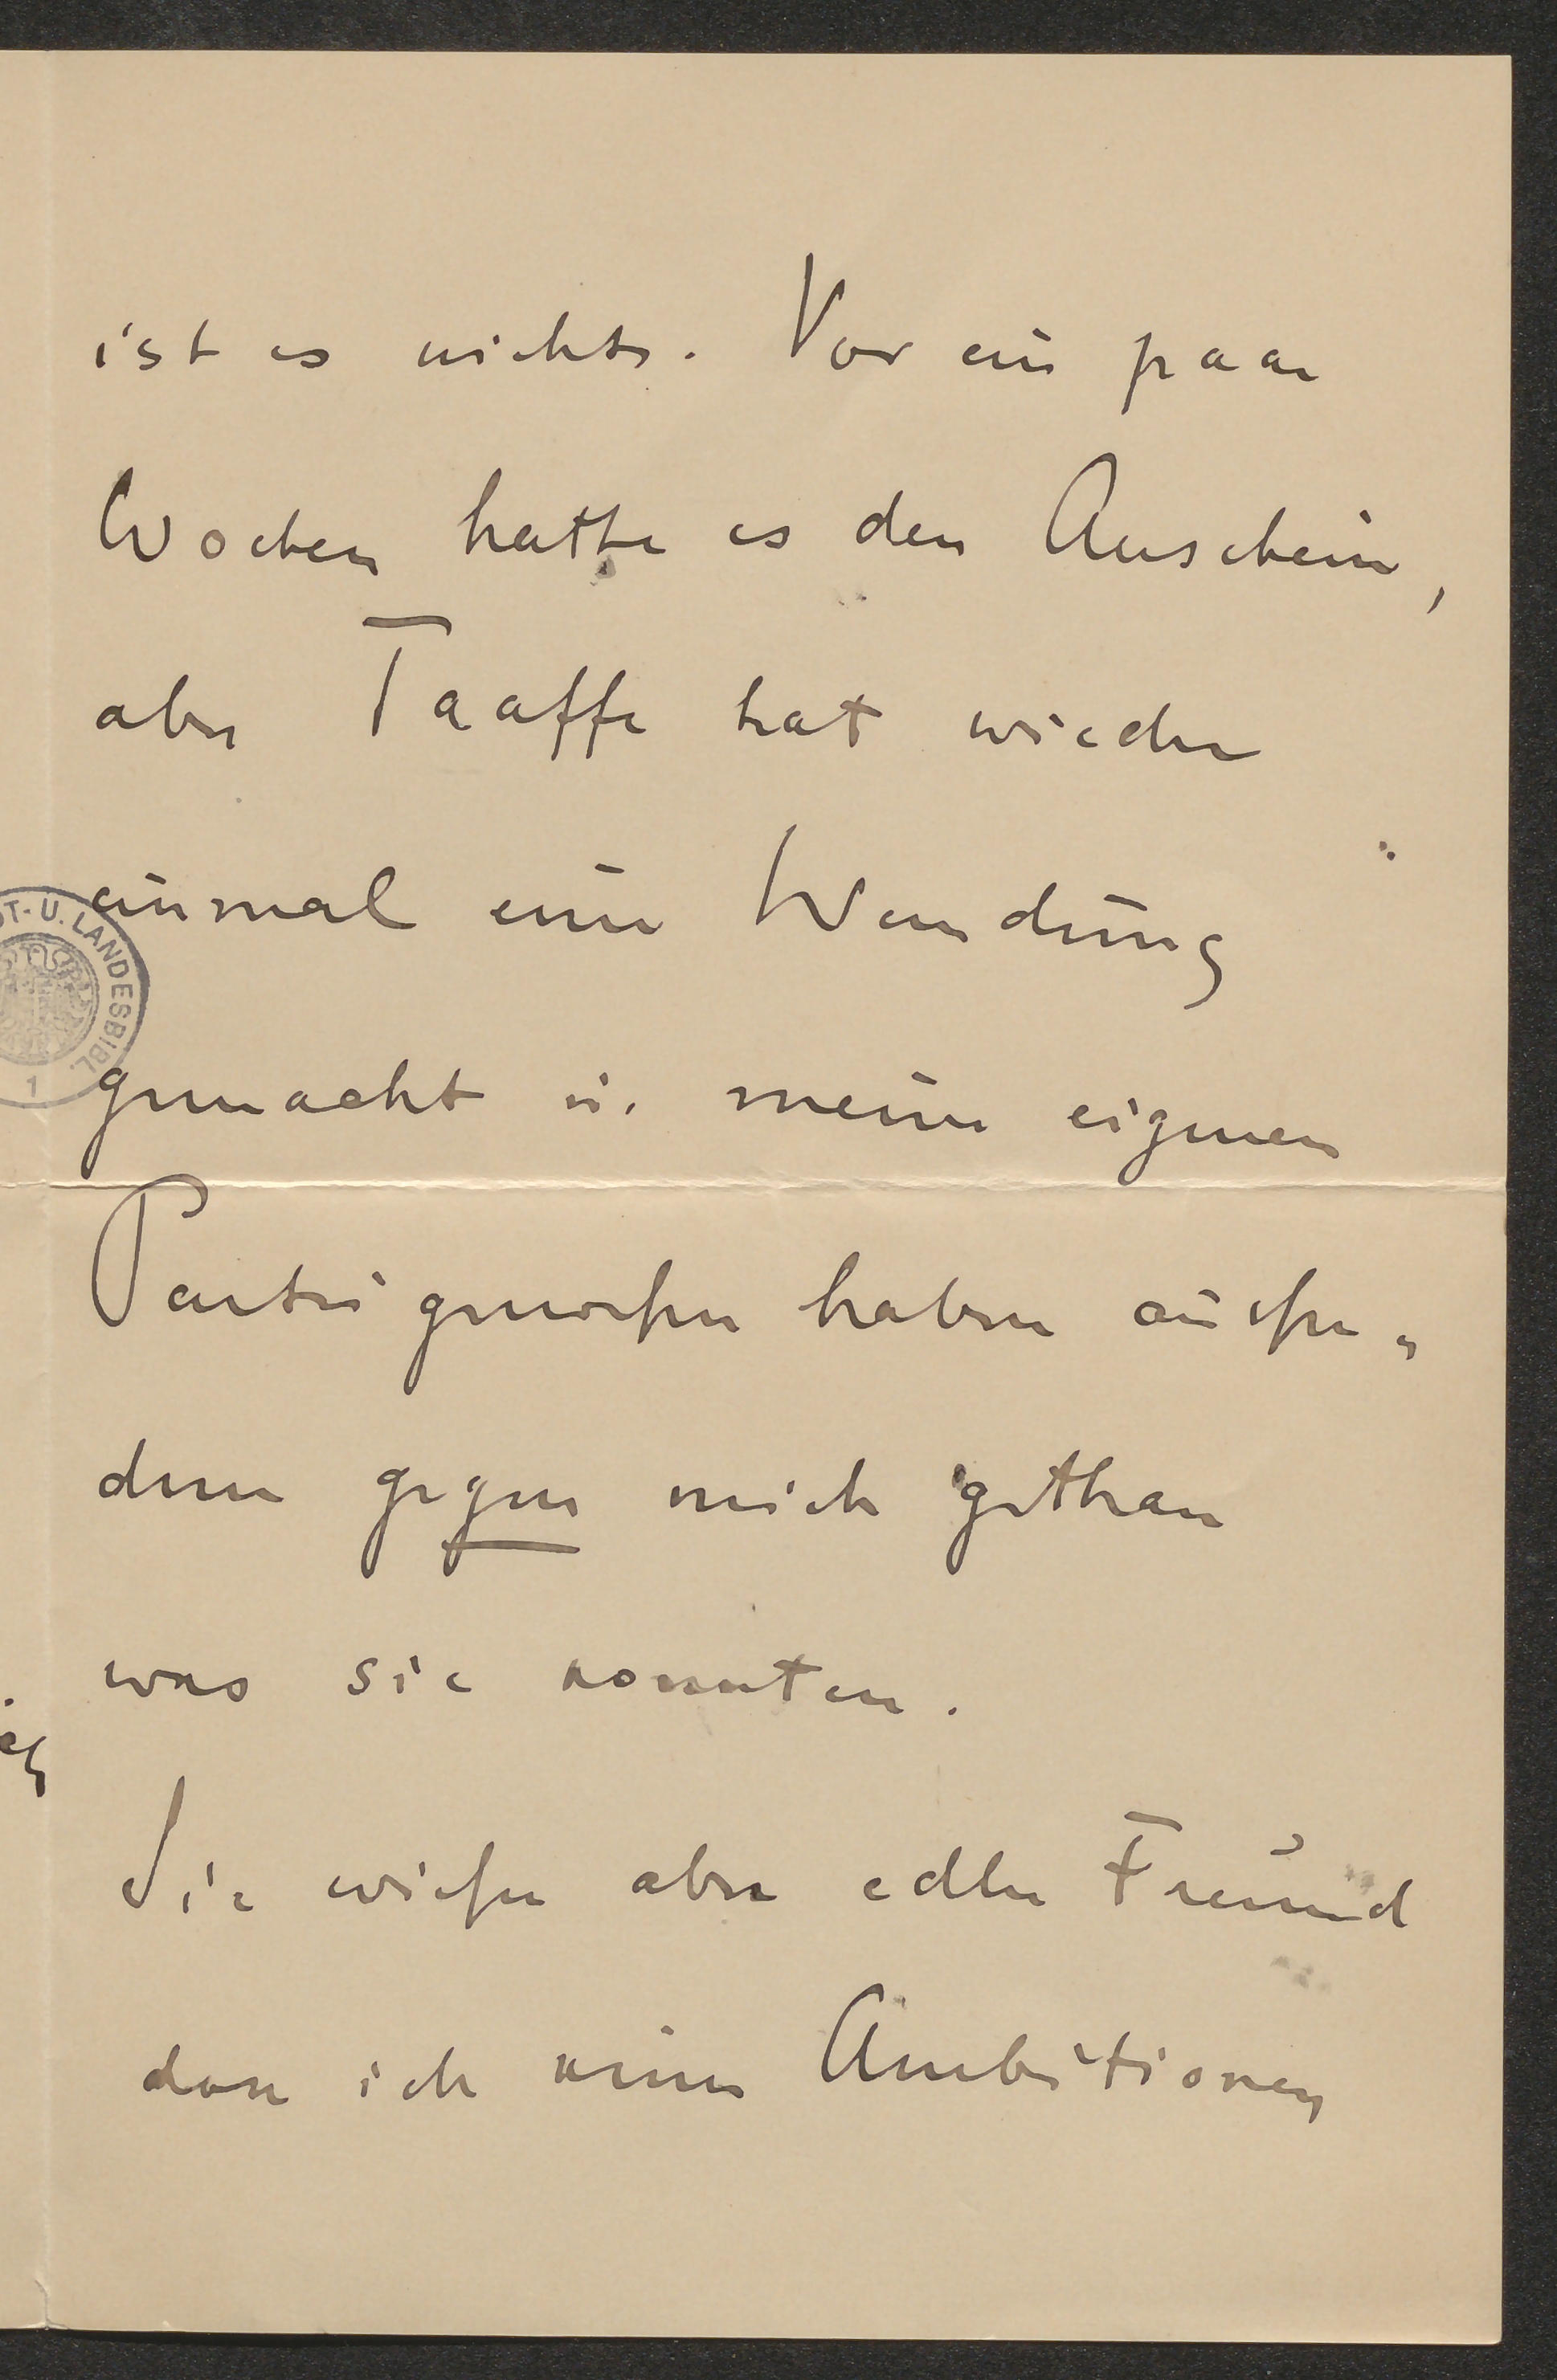 ist es nichts. Vor ein paar
Wochen hatte es den Anschein,
aber Taaffe hat wieder
einmal eine Wendung
gemacht u. meine eigenen
Parteigenossen haben ausser„
dem gegen mich gethan
was sie konnten.
Sie wissen aber edler Freund
dass ich keine Ambitionen
T- U. LANDESBIBL.
1